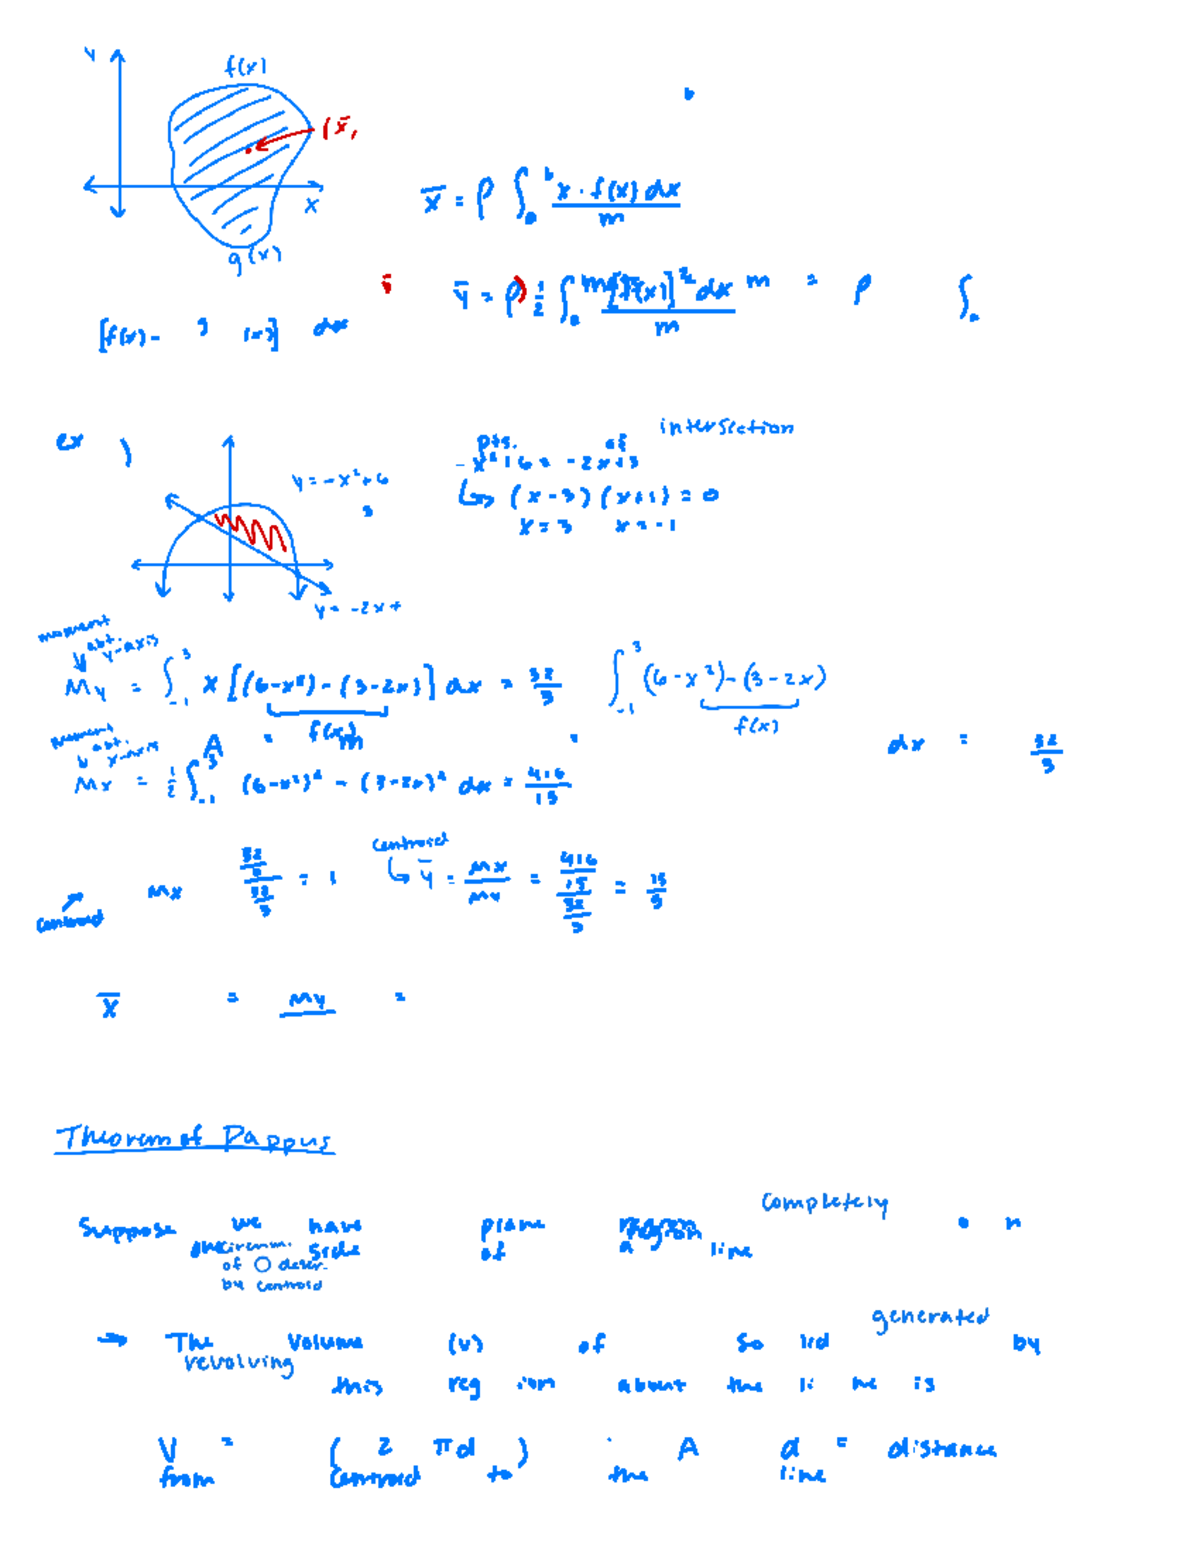 y
f(x)
(x̄,
x
g(x)
b
x̄ = ρ ∫ₐᵇ x · f(x) dx / m
ȳ = ρ ½ ∫ₐ [f(x)]² dx / m
m = ρ ∫ₐ
[f(x) - g (x)] dx
ex )
y = -x² + 6
3
y = -2x +
pts. of intersection
-x² + 6 = -2x + 3
↳ (x - 3)(x + 1) = 0
x = 3 x = -1
moment abt. y-axis
My = ∫₋₁³ x[(6-x²) - (3-2x)] dx = 32/3
f(x)
∫₋₁³ (6-x²) - (3-2x)
f(x)
dx = 32/3
m
A = =
moment abt. x-axis
Mx = ½ ∫₋₁³ (6-x²)² - (3-2x)² dx = 416/15
centroid
Mx
32/3 / 32/3 = 1
centroid
↳ ȳ = Mx/My = 416/15 / 32/3 =
x̄ = My =
Theorem of Pappus
Suppose we have plane region completely on
one side of a line
circum. of ○ descr. by centroid
→ The volume (v) of solid generated by
revolving this region about the line is
V = (2 πd) · A d = distance
from centroid to the line